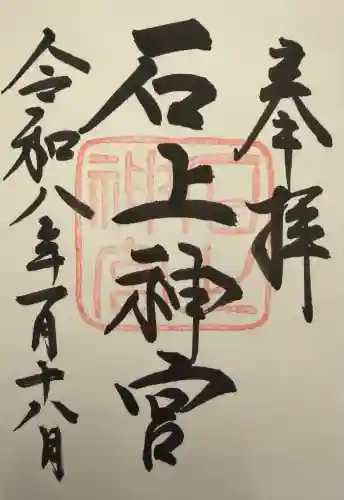 奉拝
石上神宮
石上神宮
令和八年一月十八月